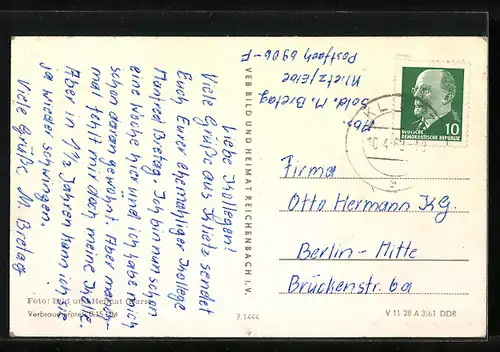 Liebe Kollegen!
Viele Grüße aus Klietz sendet
Euch Euer ehemaliger Kollege
Manfred Bretag. Ich bin nun schon
eine Woche hier und ich habe mich
schon daran gewöhnt. Aber manch-
mal fehlt mir doch meine Kelle.
Aber in 1½ Jahren kann ich sie
ja wieder schwingen.
Viele Grüße M. Bretag
Foto: Bild und Heimat
Verbraucherpreis 0,15 DM
7.1444
VEB BILD UND HEIMAT REICHENBACH I. V.
Abs.
Sold. M. Bretag
Klietz/Elbe
Postfach 6906-F
DEUTSCHE
DEMOKRATISCHE REPUBLIK
10
Firma
Otto Hermann KG.
Berlin-Mitte
Brückenstr. 6a
V 11 28 A 3/61 DDR